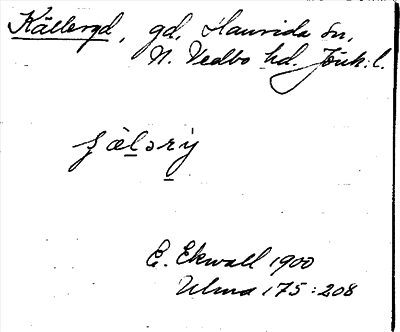 Källergd, gd, Haurida sn,
N. Vedbo hd. Jönk. l.
E. Ekwall 1900
Ulma 175:208